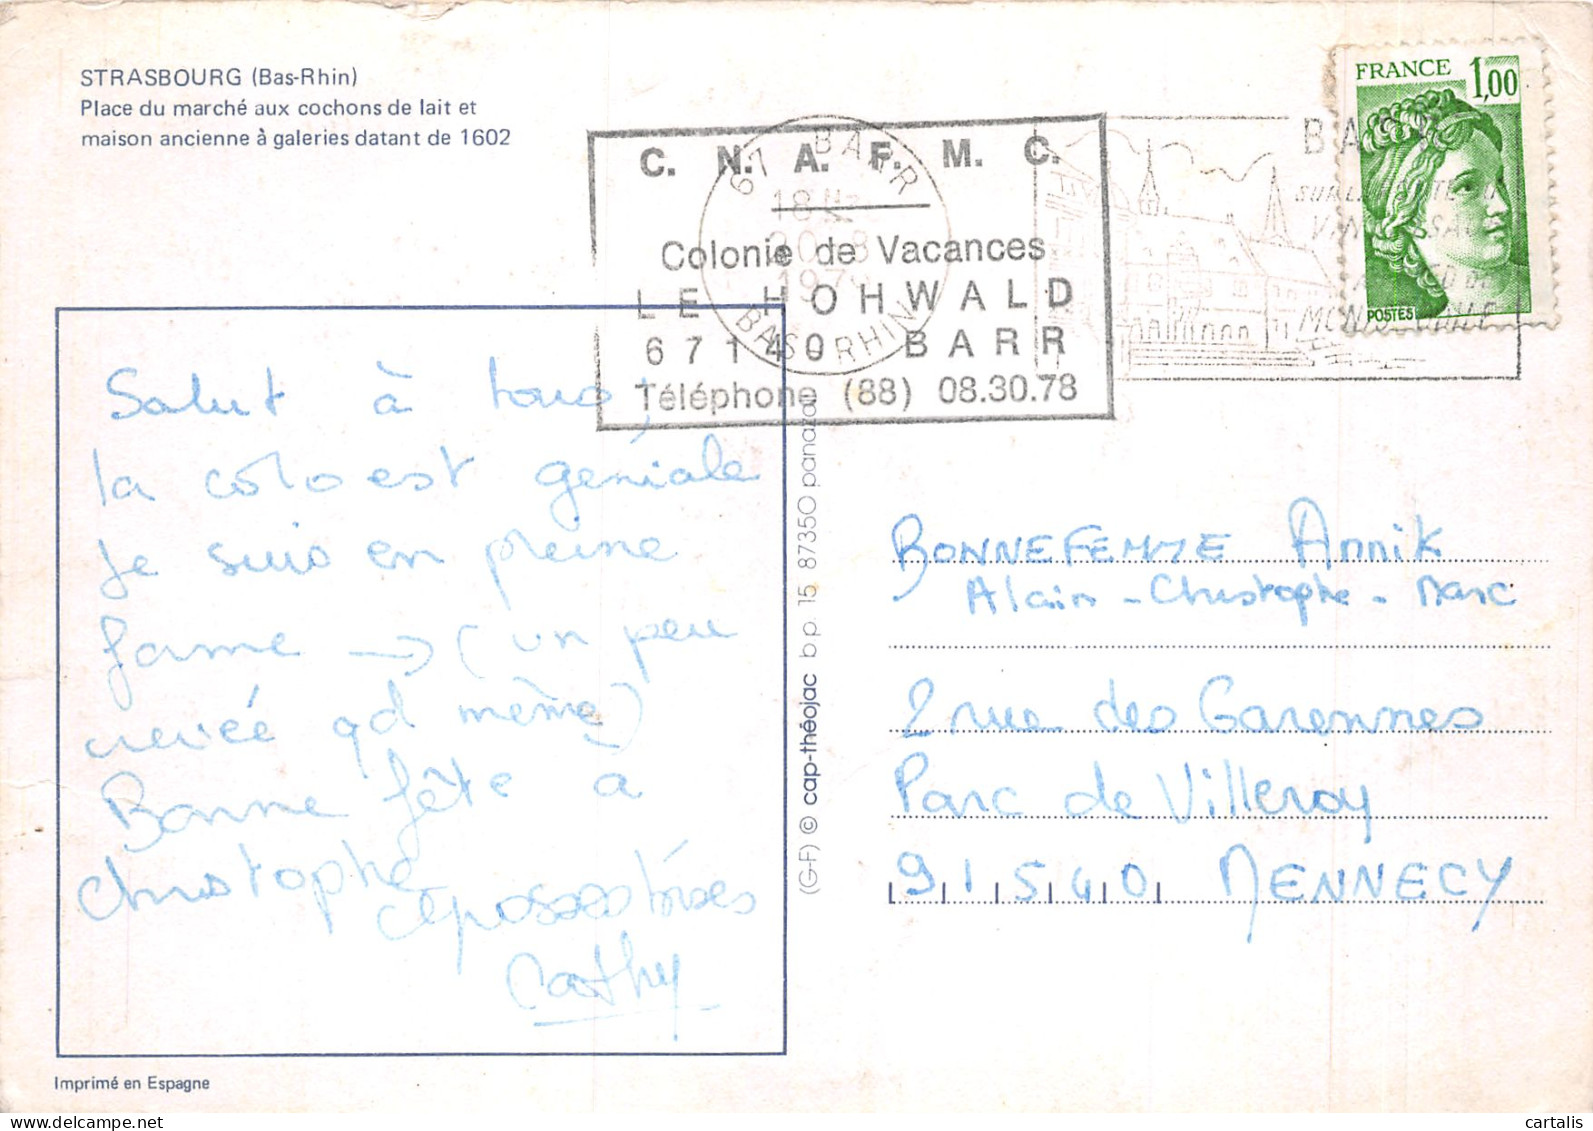 STRASBOURG (Bas-Rhin)
Place du marché aux cochons de lait et
maison ancienne à galeries datant de 1602
FRANCE 1,00
POSTES
C. N. A. F. M. C.
Colonie de Vacances
LE HOHWALD
67140 BARR
Téléphone (88) 08.30.78
67 BARR
18H
20-8
197
BAS RHIN
Salut à tous,
la colo est géniale
Je suis en pleine
forme → (un peu
crevée qd même)
Bonne fête à
Christophe
Cathy
(G-F) © cap-théojac b.p. 15 87350 panazol
BONNEFEMME Annik
Alain - Christophe - Marc
2 rue des Garennes
Parc de Villeroy
91540 MENNECY
Imprimé en Espagne
cartalis